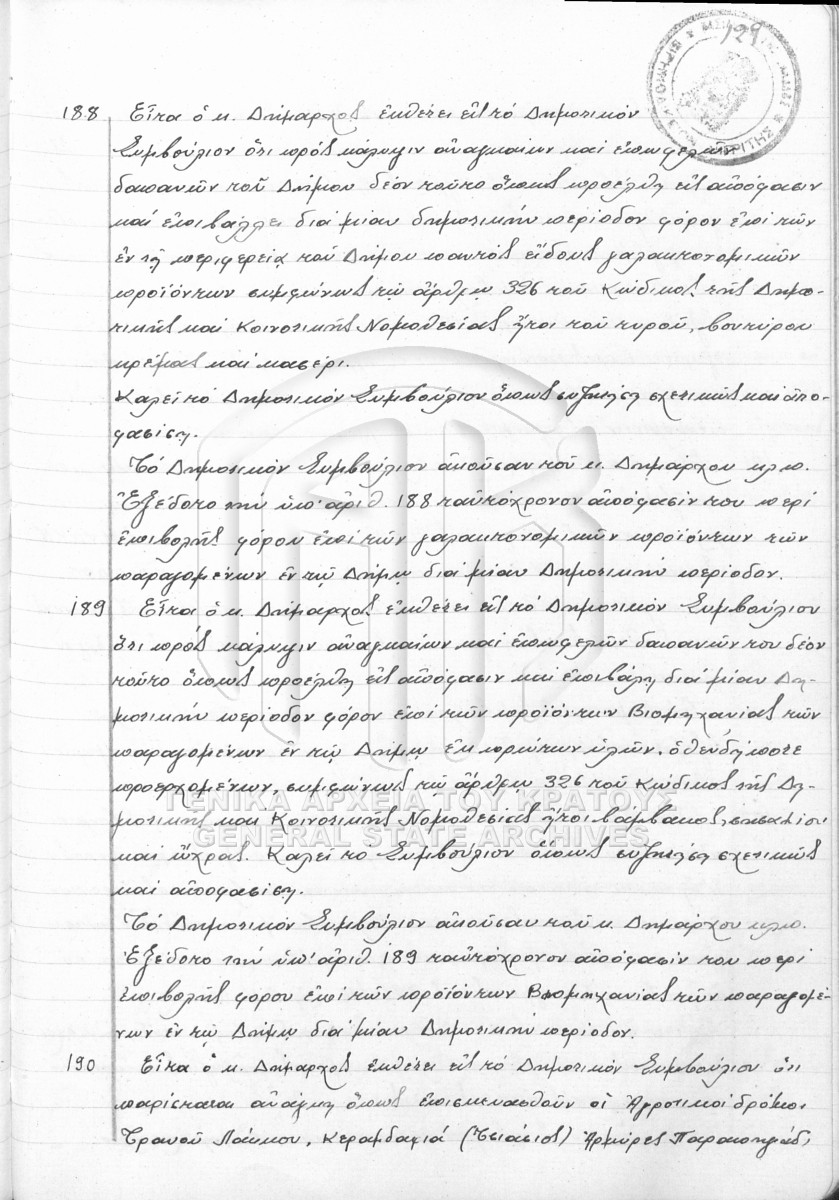 129
188 Εἶτα ὁ κ. Δήμαρχος ἐκθέτει εἰς τό Δημοτικόν
Συμβούλιον ὅτι πρός κάλυψιν ἀναγκαίων καί ἐπωφελῶν
δαπανῶν τοῦ Δήμου δέον τοῦτο ὅπως προέλθῃ εἰς ἀπόφασιν
καί ἐπιβάλλει διά μίαν δημοτικήν περίοδον φόρον ἐπί τῶν
ἐν τῇ περιφερείᾳ τοῦ Δήμου παντός εἴδους γαλακτοκομικῶν
προϊόντων συμφώνως τῷ ἄρθρῳ 326 τοῦ Κώδικος τῆς Δημο-
τικῆς καί Κοινοτικῆς Νομοθεσίας ἤτοι τοῦ τυροῦ, βουτύρου
κρέμας καί κασέρι.
Καλεῖ τό Δημοτικόν Συμβούλιον ὅπως συζητήσῃ σχετικῶς καί ἀπο-
φασίσῃ.
Τό Δημοτικόν Συμβούλιον ἀκοῦσαν τοῦ κ. Δημάρχου κλπ.
Ἐξέδοτο τήν ὑπ' ἀριθ. 188 ταὐτόχρονον ἀπόφασίν του περί
ἐπιβολῆς φόρου ἐπί τῶν γαλακτοκομικῶν προϊόντων τῶν
παραγομένων ἐν τῷ Δήμῳ διά μίαν Δημοτικήν περίοδον.
189 Εἶτα ὁ κ. Δήμαρχος ἐκθέτει εἰς τό Δημοτικόν Συμβούλιον
ὅτι πρός κάλυψιν ἀναγκαίων καί ἐπωφελῶν δαπανῶν του δέον
τοῦτο ὅπως προέλθῃ εἰς ἀπόφασιν καί ἐπιβάλῃ διά μίαν Δη-
μοτικήν περίοδον φόρον ἐπί τῶν προϊόντων Βιομηχανίας τῶν
παραγομένων ἐν τῷ Δήμῳ ἐκ πρώτων ὑλῶν, ὁθενδήποτε
προερχομένων, συμφώνως τῷ ἄρθρῳ 326 τοῦ Κώδικος τῆς Δη-
μοτικῆς και Κοινοτικῆς Νομοθεσίας ἤτοι βάμβακος,
καί ὤχρας. Καλεῖ το Συμβούλιον ὅπως συζητήσῃ σχετικῶς
καί ἀποφασίσῃ.
Τό Δημοτικόν Συμβούλιον ἀκοῦσαν τοῦ κ. Δημάρχου κλπ.
Ἐξέδοτο τήν ὑπ' ἀριθ. 189 ταὐτόχρονον ἀπόφασίν του περί
ἐπιβολῆς φόρου ἐπί τῶν προϊόντων Βιομηχανίας τῶν παραγομέ-
νων ἐν τῷ Δήμῳ διά μίαν Δημοτικήν περίοδον.
190 Εἶτα ὁ κ. Δήμαρχος ἐκθέτει εἰς τό Δημοτικόν Συμβούλιον ὅτι
παρίσταται ἀνάγκη ὅπως ἐπισκευασθοῦν οἱ Ἀγροτικοί δρόμοι
Τρανοῦ Λάκκου, Κεραμδαριά Ἀρμύρες
ΓΕΝΙΚΑ ΑΡΧΕΙΑ ΤΟΥ ΚΡΑΤΟΥΣ
GENERAL STATE ARCHIVES